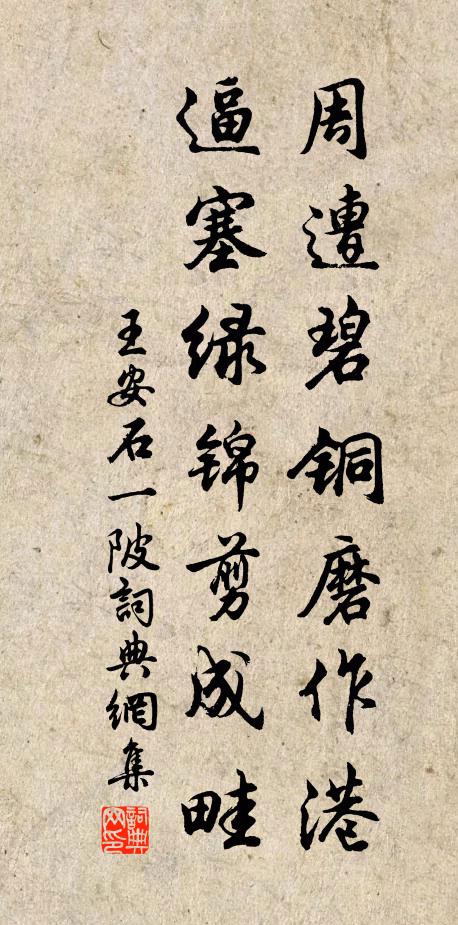 周遭碧铜磨作港
逼塞绿锦剪成畦
王安石一陂詞典網集
詞典网印